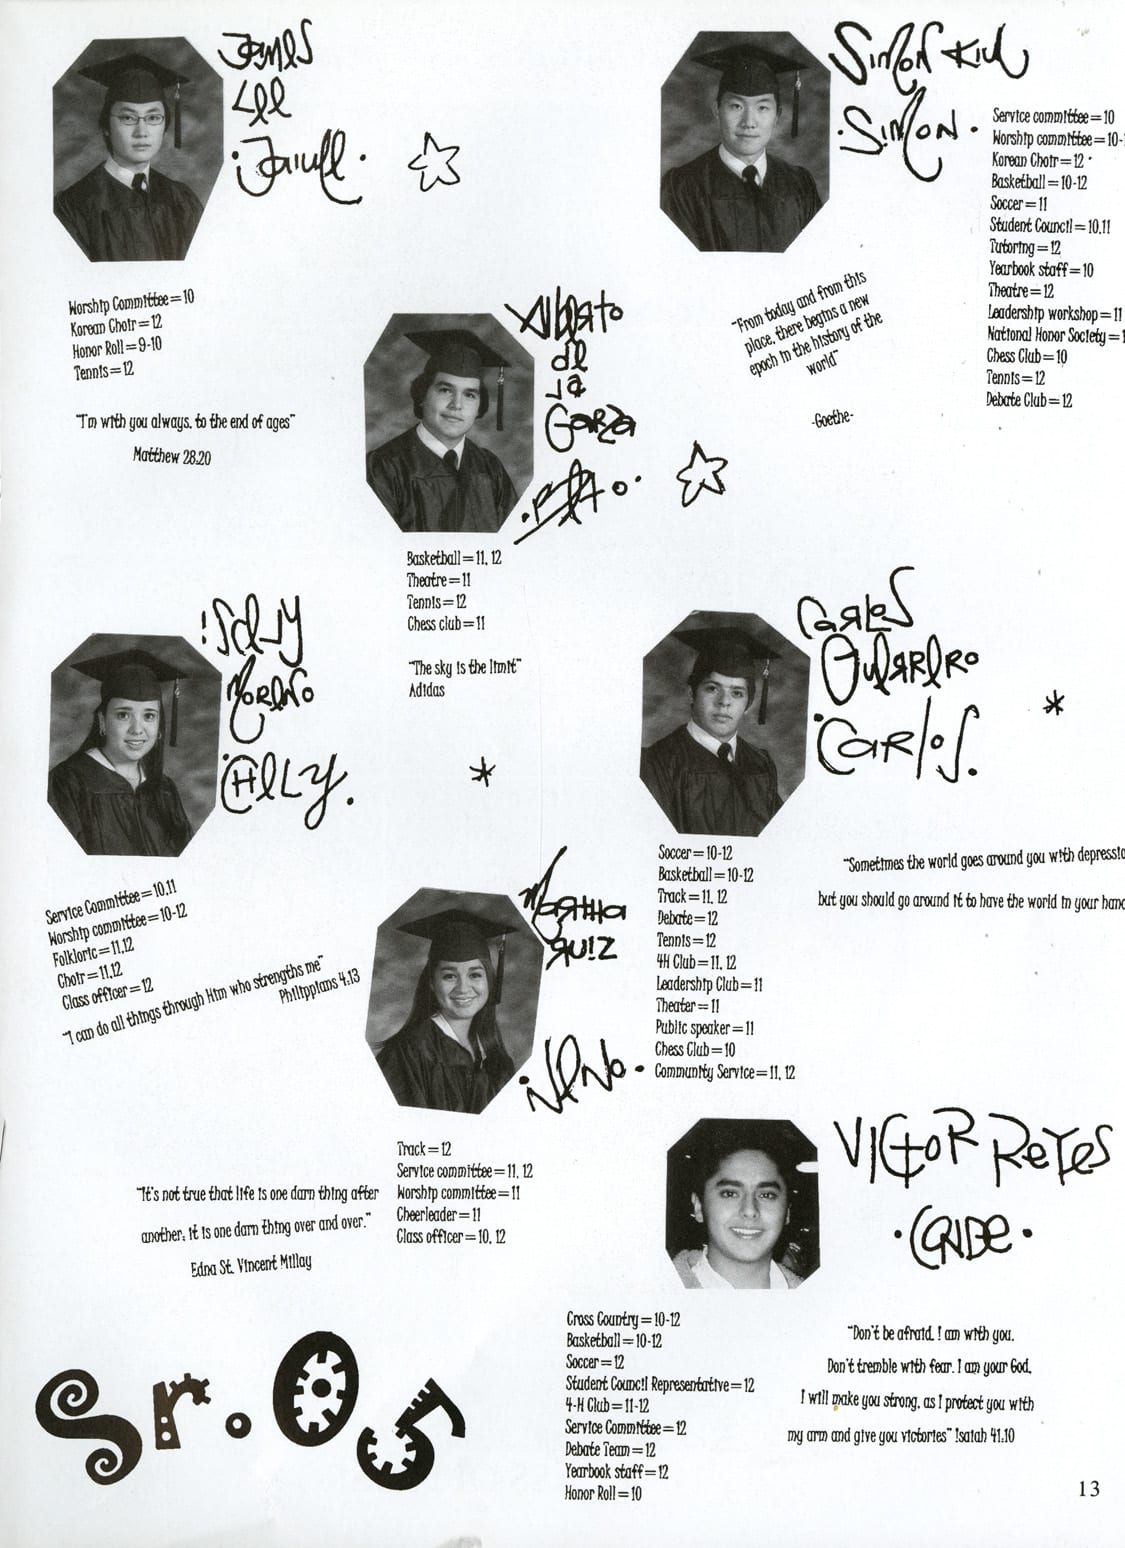 James
Lee
·Jaimee·
Worship Committee=10
Korean Choir=12
Honor Roll=9-10
Tennis=12
"I'm with you always, to the end of ages"
Matthew 28.20
Simon Kim
·Simon·
Service committee=10
Worship committee=10-
Korean Choir=12
Basketball=10-12
Soccer=11
Student Council=10,11
Tutoring=12
Yearbook staff=10
Theatre=12
Leadership workshop=11
National Honor Society=1
Chess Club=10
Tennis=12
Debate Club=12
"From today and from this
place, there begins a new
epoch in the history of the
world"
-Goethe-
Alberto
de
la
Garza
·Beto·
Basketball=11, 12
Theatre=11
Tennis=12
Chess club=11
"The sky is the limit"
Adidas
Iselly
Moreno
·Chelly.
Service Committee=10,11
Worship committee=10-12
Folkloric=11,12
Choir=11,12
Class officer=12
"I can do all things through Him who strengths me"
Philippians 4.13
Carlos
Guerrero
·Carlos.
Soccer=10-12
Basketball=10-12
Track=11, 12
Debate=12
Tennis=12
4H Club=11, 12
Leadership Club=11
Theater=11
Public speaker=11
Chess Club=10
Community Service=11, 12
"Sometimes the world goes around you with depressio
but you should go around it to have the world in your hand
Martha
Ruiz
·Nena·
Track=12
Service committee=11, 12
Worship committee=11
Cheerleader=11
Class officer=10, 12
"It's not true that life is one darn thing after
another; it is one darn thing over and over."
Edna St. Vincent Millay
Victor Reyes
·Conde·
Cross Country=10-12
Basketball=10-12
Soccer=12
Student Council Representative=12
4-H Club=11-12
Service Committee=12
Debate Team=12
Yearbook staff=12
Honor Roll=10
"Don't be afraid. I am with you.
Don't tremble with fear. I am your God.
I will make you strong, as I protect you with
my arm and give you victories" Isaiah 41.10
Sr.05
13